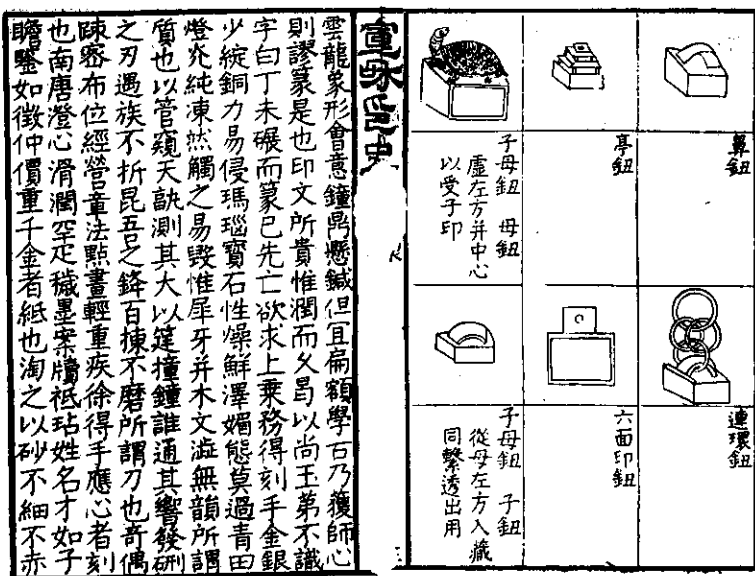 鼻鈕
亭鈕
子母鈕 母鈕
虛左方并中心
以受子印
連環鈕
六面印鈕
子母鈕 子鈕
從母左方入藏
同繫透出用
宣和印史
雲龍象形會意鐘鼎懸鍼但宜扁額學古乃獲師心
則謬篆是也印文所貴惟潤而久曷以尚玉第不識
字白丁未碾而篆已先亡欲求上乘務得刻手金銀
少綻銅力易侵瑪瑙寶石性燥鮮澤媚態莫過青田
燈光純凍然觸之易毀惟犀牙并木文澁無韻所謂
質也以管窺天訣測其大以筳撞鐘誰通其響發硎
之刃遇族不折昆吾之鋒百揀不磨所謂刀也奇偶
疎密布位經營章法點畫輕重疾徐得手應心者刻
也南唐澄心滑潤罕疋穢墨案牘祗玷姓名才如子
瞻鑒如徵仲價重千金者紙也淘之以砂不細不赤